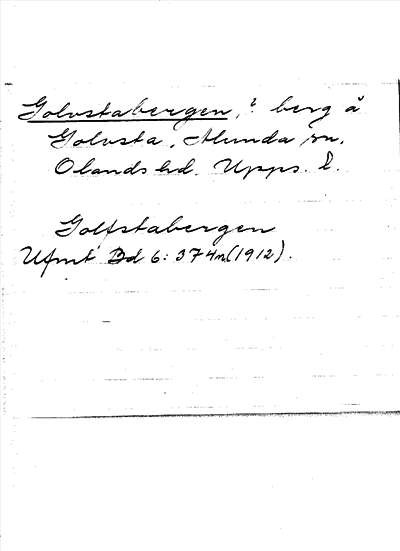 Golvstabergen, ? berg å
Golvsta, Alunda sn.
Olands hd. Upps. l.
Golfstabergen
Ufmt Bd 6: 374n (1912).